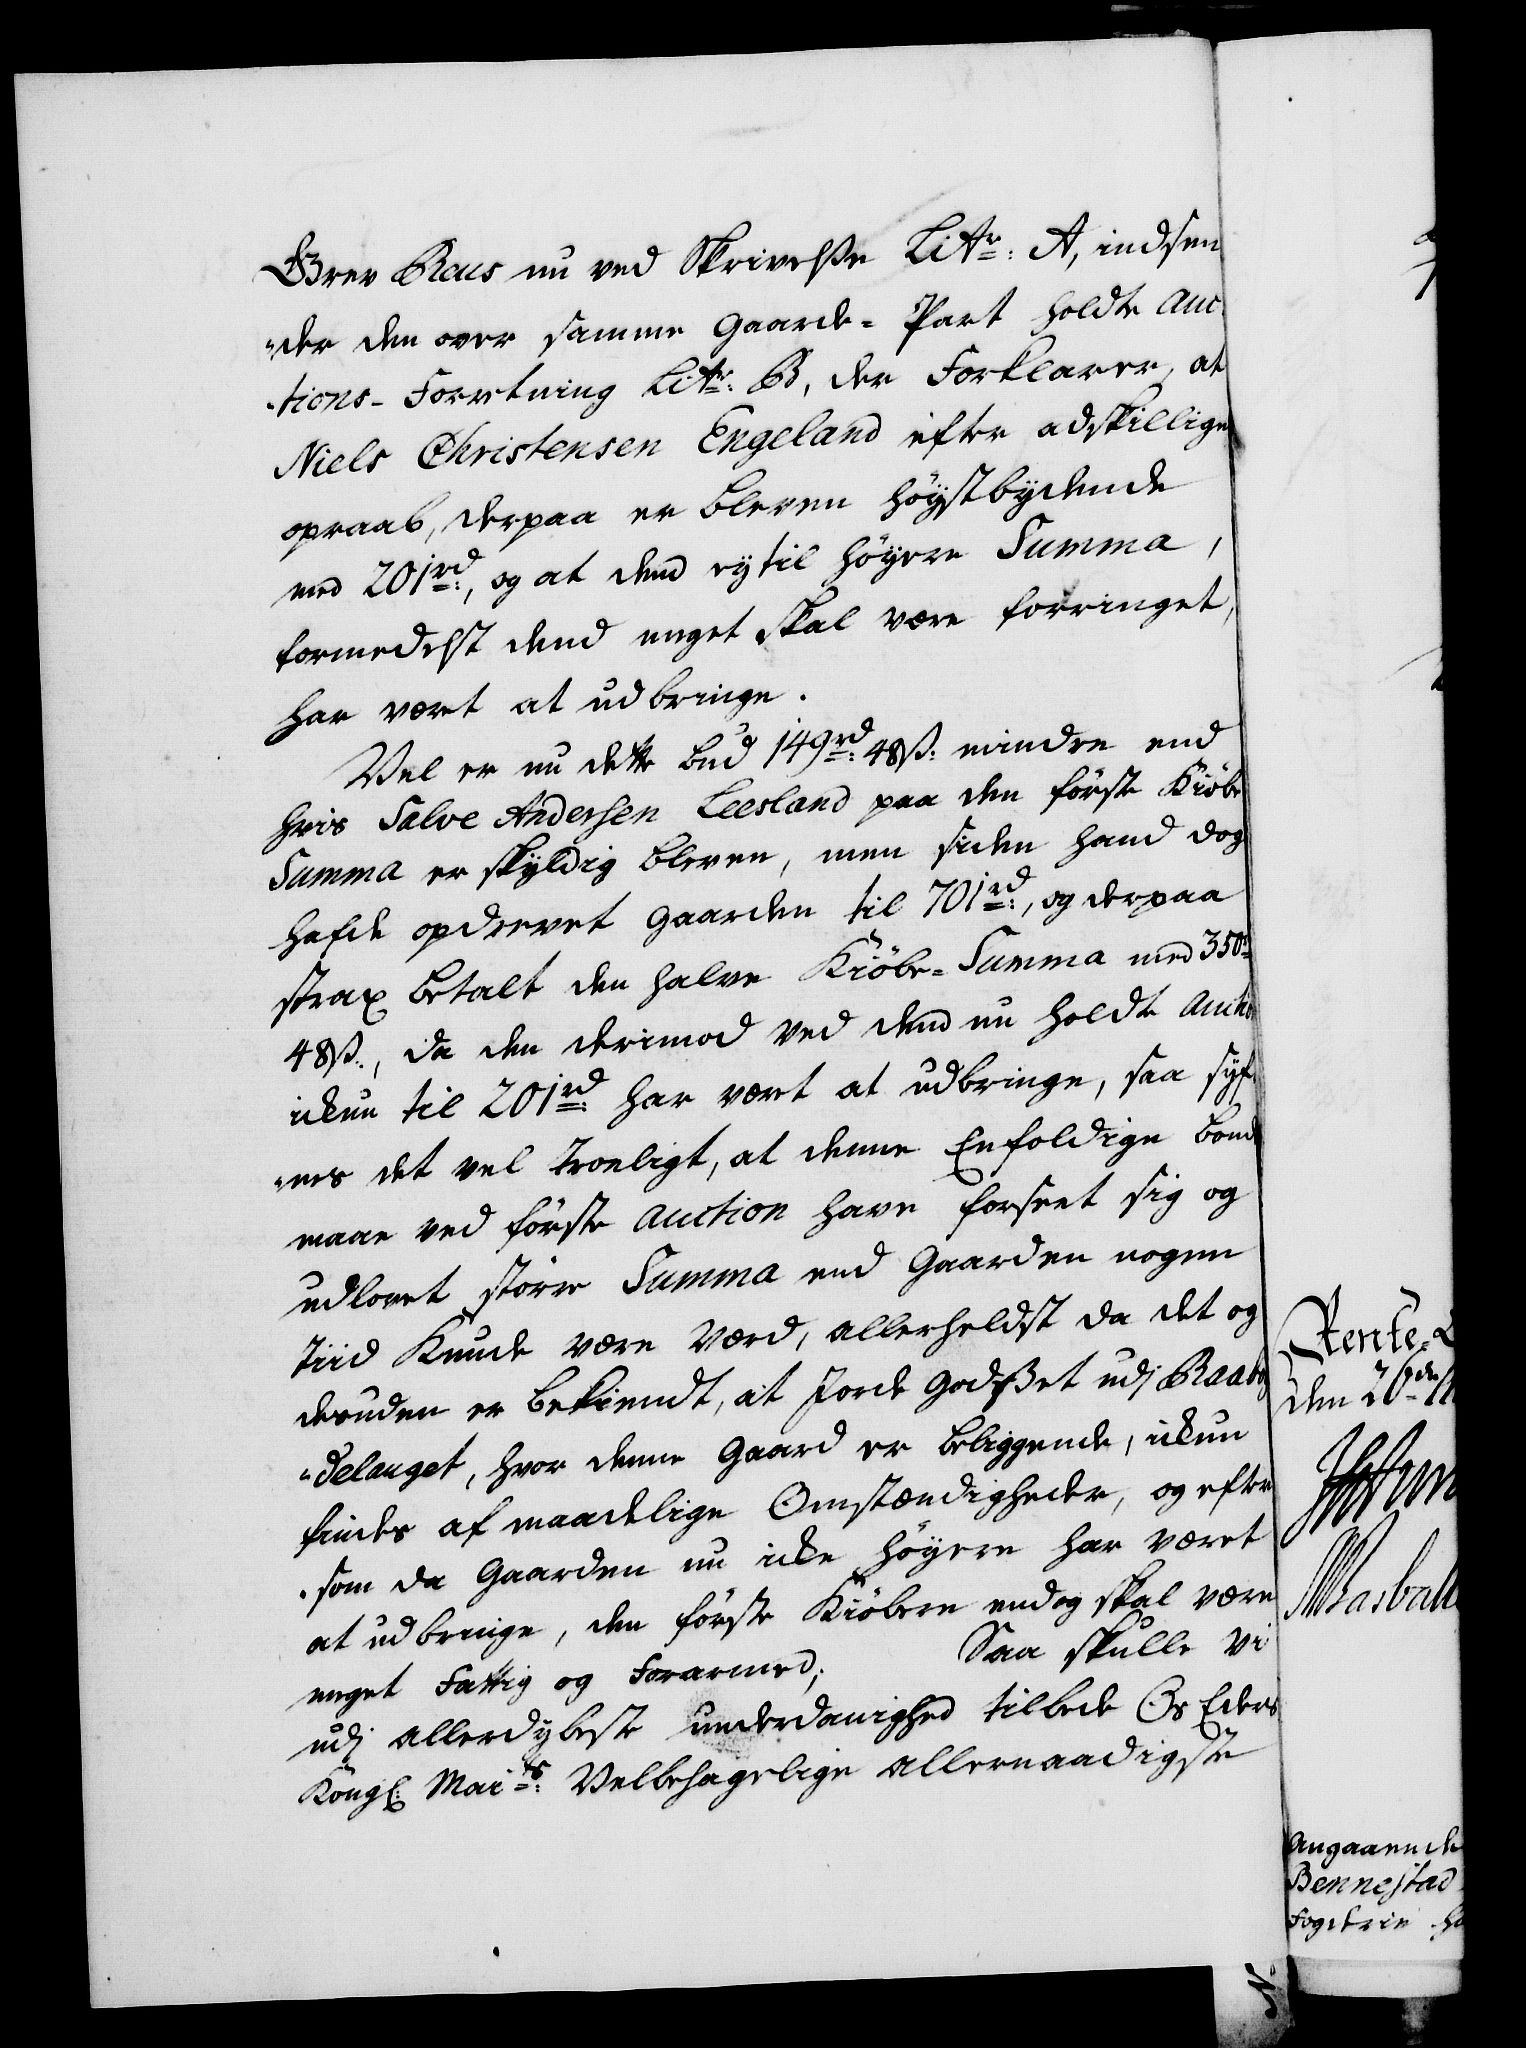 Grev Reus nu ved Skrivelsse Litr: A, indsen
"der den over samme Gaarde-Part holdte Auc
"tions-Forretning Litr: B, der Forklarer, at
Niels Christensen Engeland efter adskillige
opraab, derpaa er bleven höystbydende
med 201rd:, og at dend ey til höyere Summa,
formedelst dend meget skal være forringet,
har vært at udbringe.
Vel er nu dette bud 149rd: 48ß: mindre end
hvis Salve Andersen Leesland paa den förste Kiöbe
Summa er skyldig bleven, men siden hand dog
hafde opdrevet Gaarden til 701rd:, og derpaa
strax betalt den halve Kiöbe-Summa med 350rd
48ß., da den derimod ved dend nu holdte Auction
ickun til 201rd: har vært at udbringe, saa syf
"nes det vel troeligt, at denne Enfoldige bonde
maae ved förste Auction have forseet sig og
udlovet större Summa end Gaarden nogen
tiid kunde være værd, allerheldst da det og
desuden er bekiendt, at Jorde Godsset udj Raabÿ
"delauget, hvor denne Gaard er beliggende, ickun
findes af maadelige Omstændigheder, og efter
"som da Gaarden nu icke höyere har været
at udbringe, den förste Kiöbere endog skal være
meget Fattig og Forarmed; Saa skulle vi
udj allerdybeste underdanighed tilbede Os Eders
Kongl: Maits: Velbehagelige allernaadigste
Rente-
den 26de
Angaaende
Bennestad
Fogderie